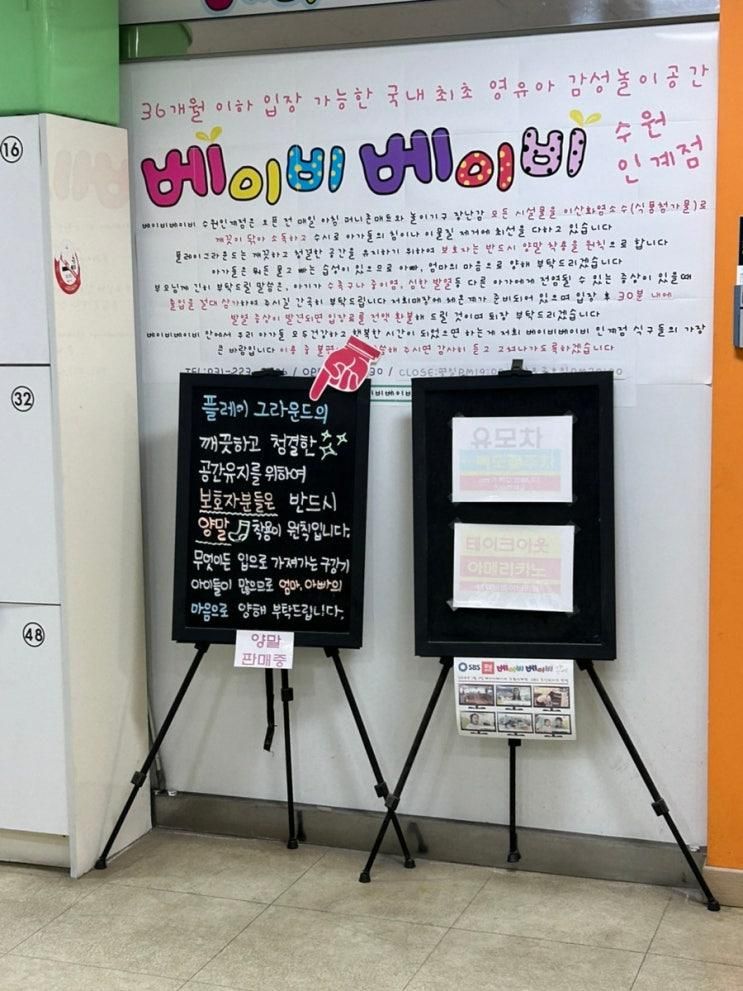 36개월 이하 입장 가능한 국내 최초 영유아 감성놀이공간
베이비 베이비
수원
인계점
베이비베이비 수원인계점은 오픈 전 매일 아침 퍼니존매트와 놀이기구 장난감 모든 시설물을 이산화염소수(식품첨가물)로
깨끗이 닦아 소독하고 수시로 아가들의 침이나 이물질 제거에 최선을 다하고 있습니다
플레이그라운드는 깨끗하고 청결한 공간을 유지하기 위하여 보호자는 반드시 양말 착용을 원칙으로 합니다
아가들은 뭐든 물고 빠는 습성이 있으므로 아빠, 엄마의 마음으로 양해 부탁드리겠습니다
부모님께 간히 부탁드릴 말씀은, 아기가 수족구나 중이염, 심한 발열등 다른 아가에게 전염될 수 있는 증상이 있을때
출입을 절대 삼가하여 주시길 간곡히 부탁드립니다 저희매장에 체온계가 준비되어 있으며 입장 후 30분 내에
발열 증상이 발견되면 입장료를 전액 환불해 드릴 것이며 퇴장 부탁드리겠습니다
베이비베이비 안에서 우리 아가들 모두건강하고 행복한 시간이 되었으면 하는게 저희 베이비베이비 인계점 식구들의 가장
큰 바램입니다 이용 중 주시면 감사히 듣고 고쳐나가도록하겠습니다
TEL:031-223
16
32
48
플레이 그라운드의
깨끗하고 청결한
공간유지를 위하여
보호자분들은 반드시
양말 착용이 원칙입니다.
무엇이든 입으로 가져가는 구강기
아이들이 많으므로 엄마, 아빠의
마음으로 양해 부탁드립니다.
양말
판매중
유모차
테이크아웃
아메리카노
SBS 베이비베이비